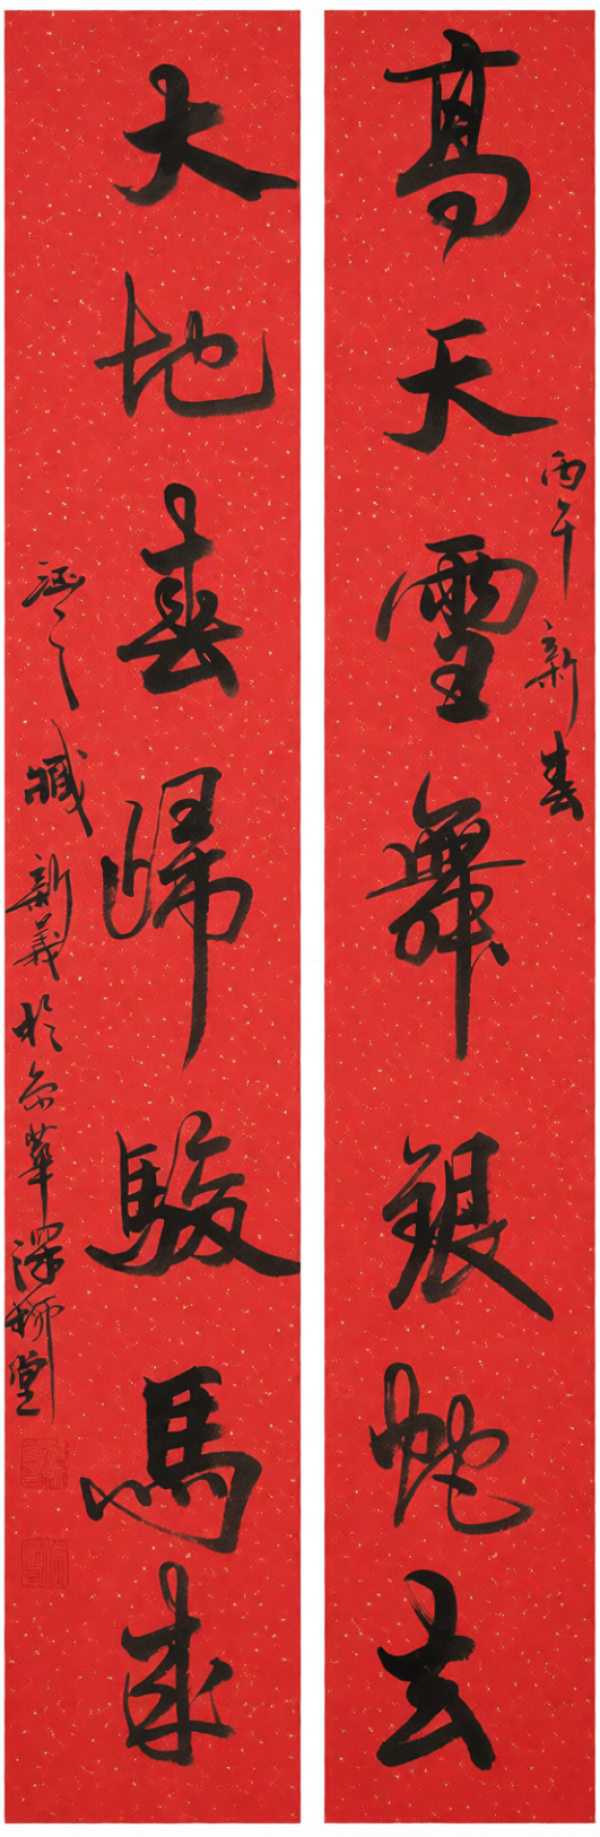 高天雪舞銀蛇去
丙午新春
大地春歸駿馬來
臧新義於京華深柳堂